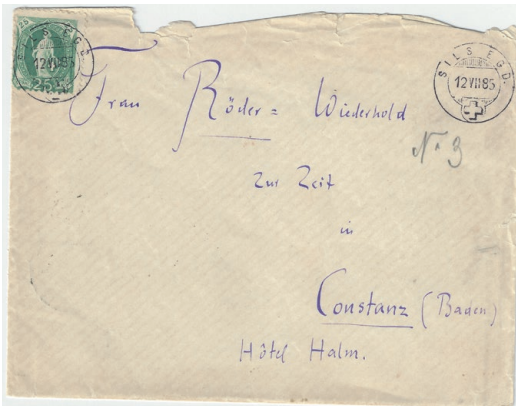 SILS EGD.
12 VII 85
25
SILS EGD.
12 VII 85
Frau Röder=Wiederhold
No 3
zur Zeit
in
Constanz (Baden)
Hôtel Halm.